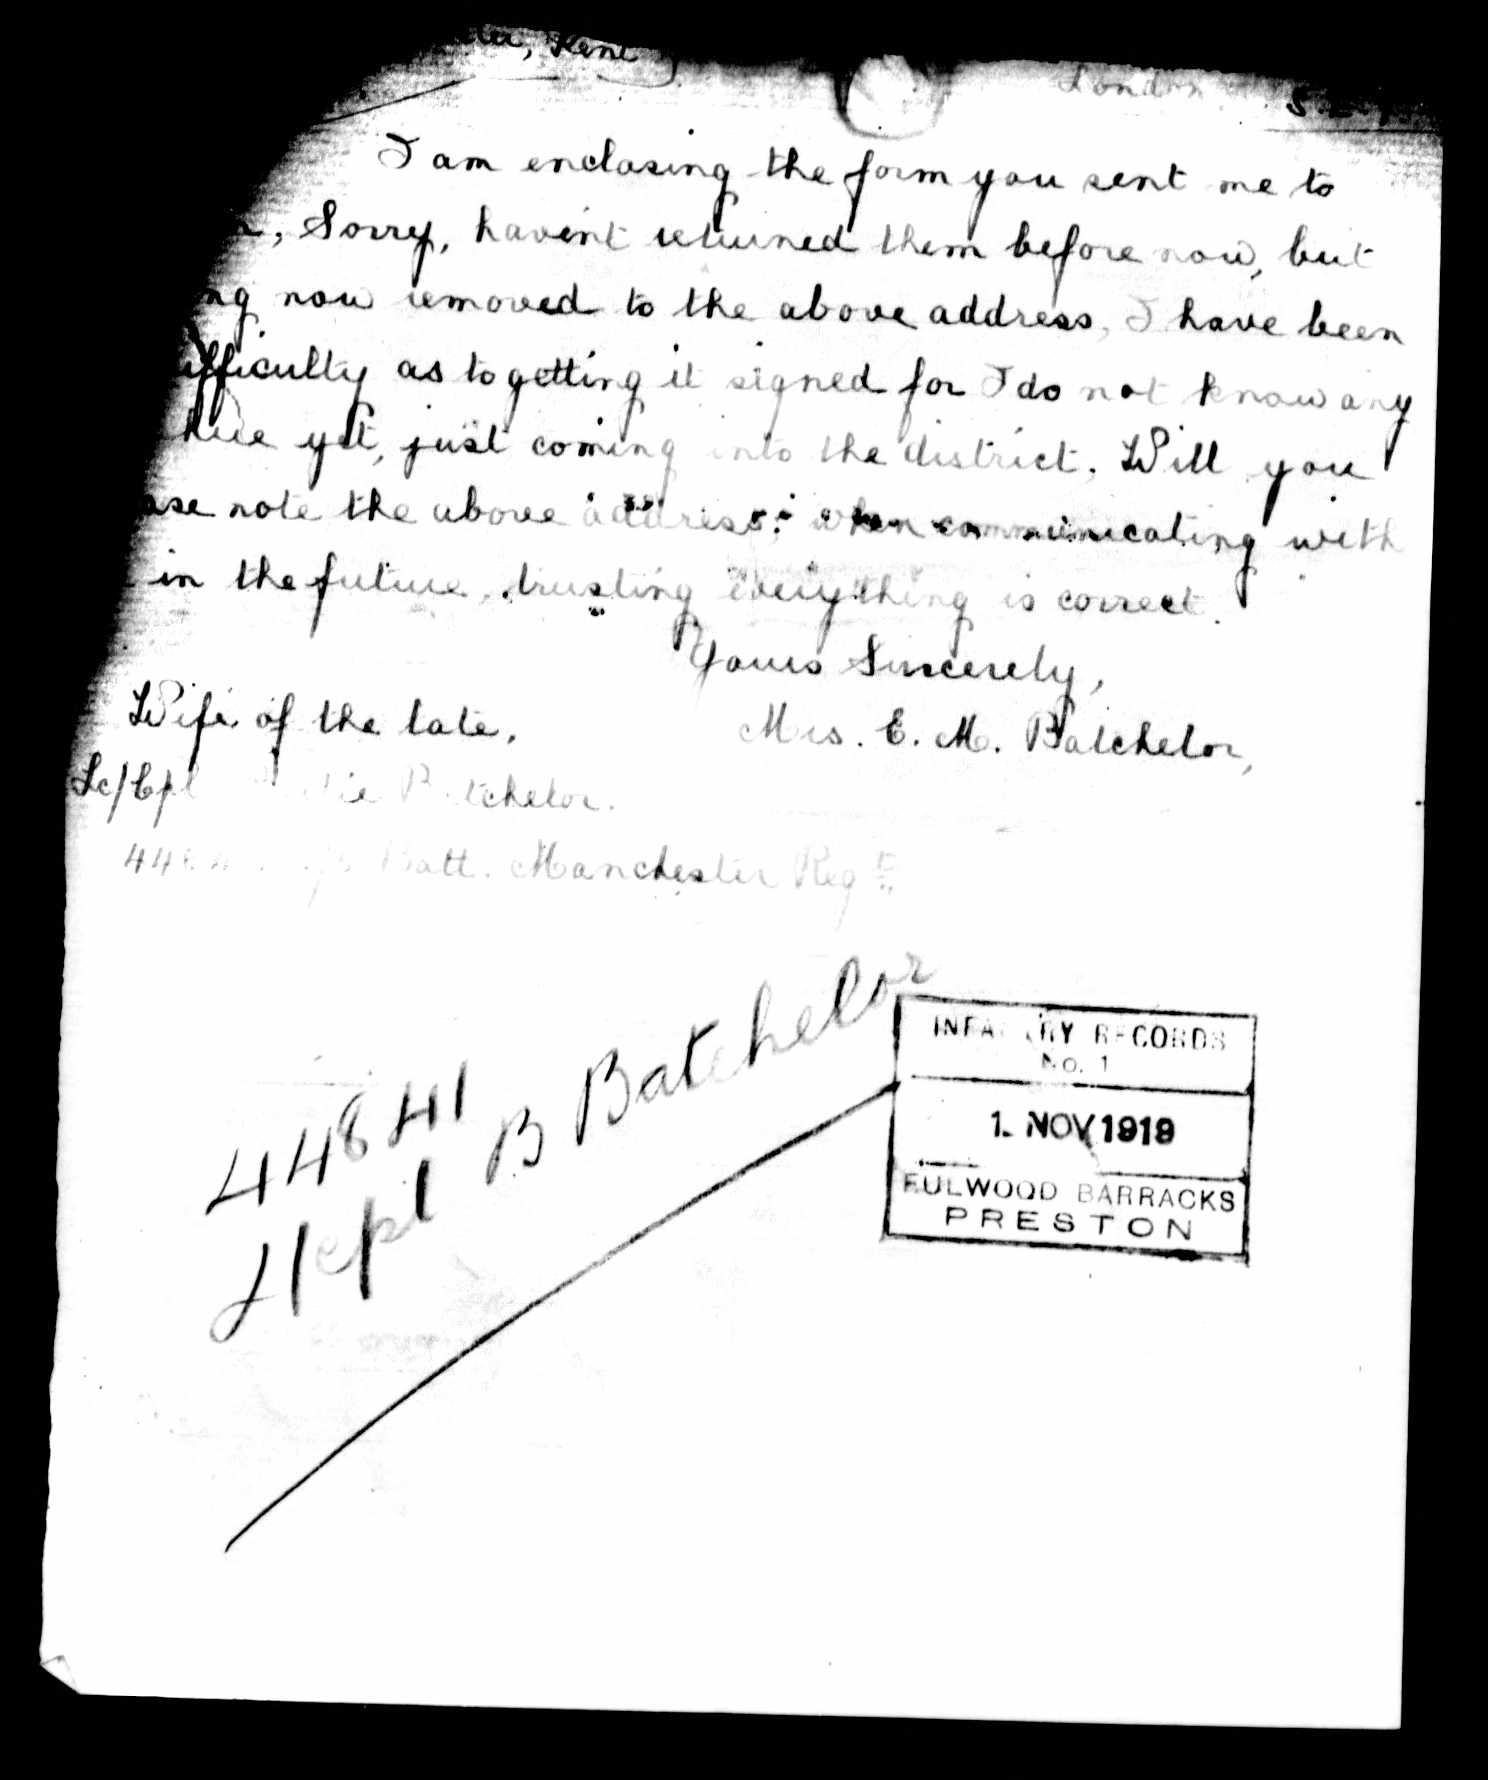 Kent
London
I am enclosing the form you sent me to
Sorry, havent returned them before now, but
now removed to the above address, I have been
difficulty as to getting it signed for I do not know any
here yet, just coming into the district. Will you
note the above address, when communicating with
in the future, trusting everything is correct.
Yours Sincerely,
Wife of the late,
Mrs. E. M. Batchelor,
Lc/Cpl Batchelor.
Batt. Manchester Regt.
44841
L/Cpl B Batchelor
INFANTRY RECORDS
No. 1
1. NOV 1919
FULWOOD BARRACKS
PRESTON